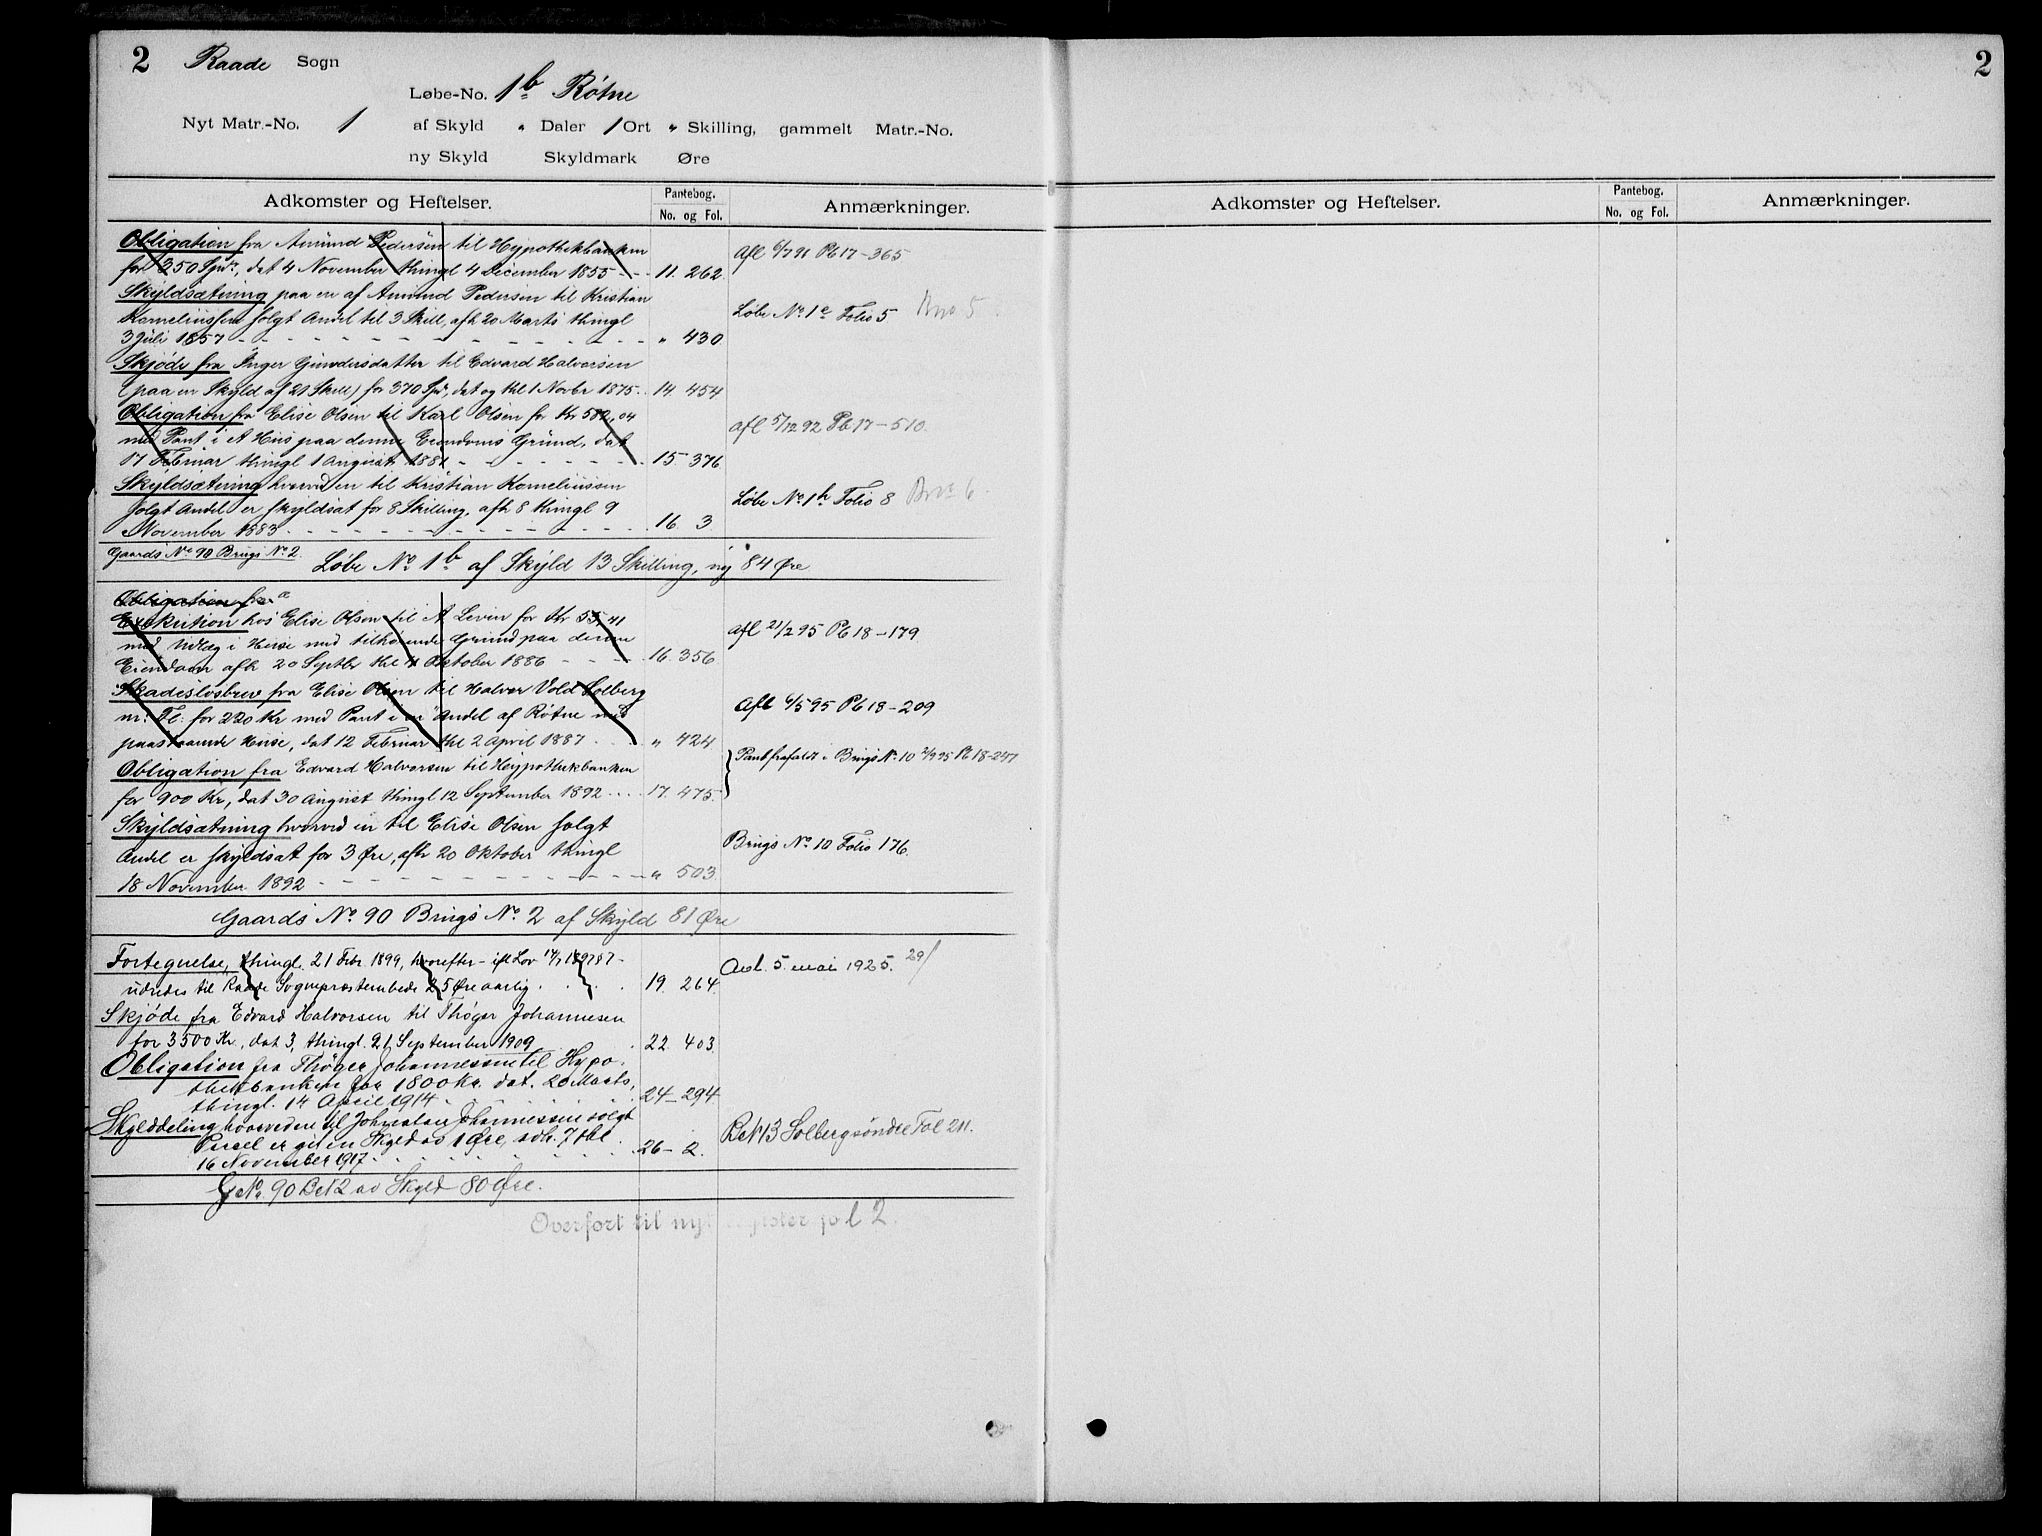 2 Raade Sogn
Løbe-No. 1b Røtne
Nyt Matr.-No. 1 af Skyld " Daler 1 Ort " Skilling, gammelt Matr.-No.
ny Skyld Skyldmark Øre
Adkomster og Heftelser. Pantebog. No. og Fol. Anmærkninger.
Obligation fra Amund Pedersen til Hypothekbanken
for 350 Spd, dat 4 November thingl 4 December 1855 - - 11. 262. Afl 6/7 91 Pb 17-365
Skyldsætning paa en af Amund Pedersen til Kristian
Korneliussen solgt Andel til 3 Skill, afh 20 Marts thingl Løbe No 1e Folio 5 Bno 5
3 Juli 1857 - - - " 430
Skjøde fra Inger Gundersdatter til Edvard Halvorsen
(paa en Skyld af 21 Skill) for 370 Spd, dat og thl 1 Novbr 1875. 14. 454
Obligation fra Elise Olsen til Karl Olsen for Kr 582,04
med Pant i A Hus paa denne Eiendoms Grund, dat afl 5/12 92 Pb 17-510.
17 Februar thingl 1 August 1881 - - - 15. 376
Skyldsætning hvorved en til Kristian Korneliussen
solgt Andel er skyldsat for 8 Skilling, afh 8 thingl 9 Løbe No 1h Folio 8 Bno 6.
November 1883 - - - 16. 3
Gaards No 90 Brugs No 2. Løbe No 1b af Skyld 13 Skilling, ny 84 Øre
Obligation fra
Exekution hos Elise Olsen til A Levin for Kr 55,41
med Udlæg i Huse med tilhørende Grund paa denne afl 21/2 95 Pb 18-179
Eiendom afh 20 Septbr thl 4 Oktober 1886 - - - 16. 356
Skadesløsbrev fra Elise Olsen til Halvor Vold Solberg
m: Fl: for 220 Kr med Pant i en Andel af Røtne med Afl 6/5 95 Pb 18-209
paastaaende Huse, dat 12 Februar thl 2 April 1887 . . . " 424
Obligation fra Edvard Halvorsen til Hypothekbanken Pantfrafaldt i Brugs No 10 2/9 95 Pb 18-247
for 900 Kr, dat 30 August thingl 12 September 1892 .... 17. 475.
Skyldsætning hvorved en til Elise Olsen solgt
Andel er skyldsat for 3 Øre, afh 20 Oktober thingl Brugs No 10 Folio 176.
18 November 1892 - - - " 503.
Gaards No 90 Brugs No 2 af Skyld 81 Øre
Fortegnelse, thingl. 21 Febr. 1899, hvorefter - ifl Lov 14/7 1897 §7 - Avl. 5. mai 1925. 29/
udredes til Raade Sogneprestembede 25 Øre aarlig . . . 19. 264.
Skjøde fra Edvard Halvorsen til Thøger Johannesen
for 3500 Kr., dat 3, thingl. 21 September 1909 . 22. 403.
Obligation fra Thøger Johannessen til Hypo-
thekbanken for 1800 Kr. dat. 20 Marts,
thingl. 14 April 1914 . . . 24 - 294
Skylddeling hvorved en til Johannessen solgt
Parcel er git en Skyld av 1 Øre, avh. 7 thl. 26 - 2. B. No 13 Solbergsøndre Fol 211.
16 November 1917 . . .
G No. 90 B No 2 av Skyld 80 Øre.
Overført til nyt register fol 2.
2
Adkomster og Heftelser. Pantebog. No. og Fol. Anmærkninger.